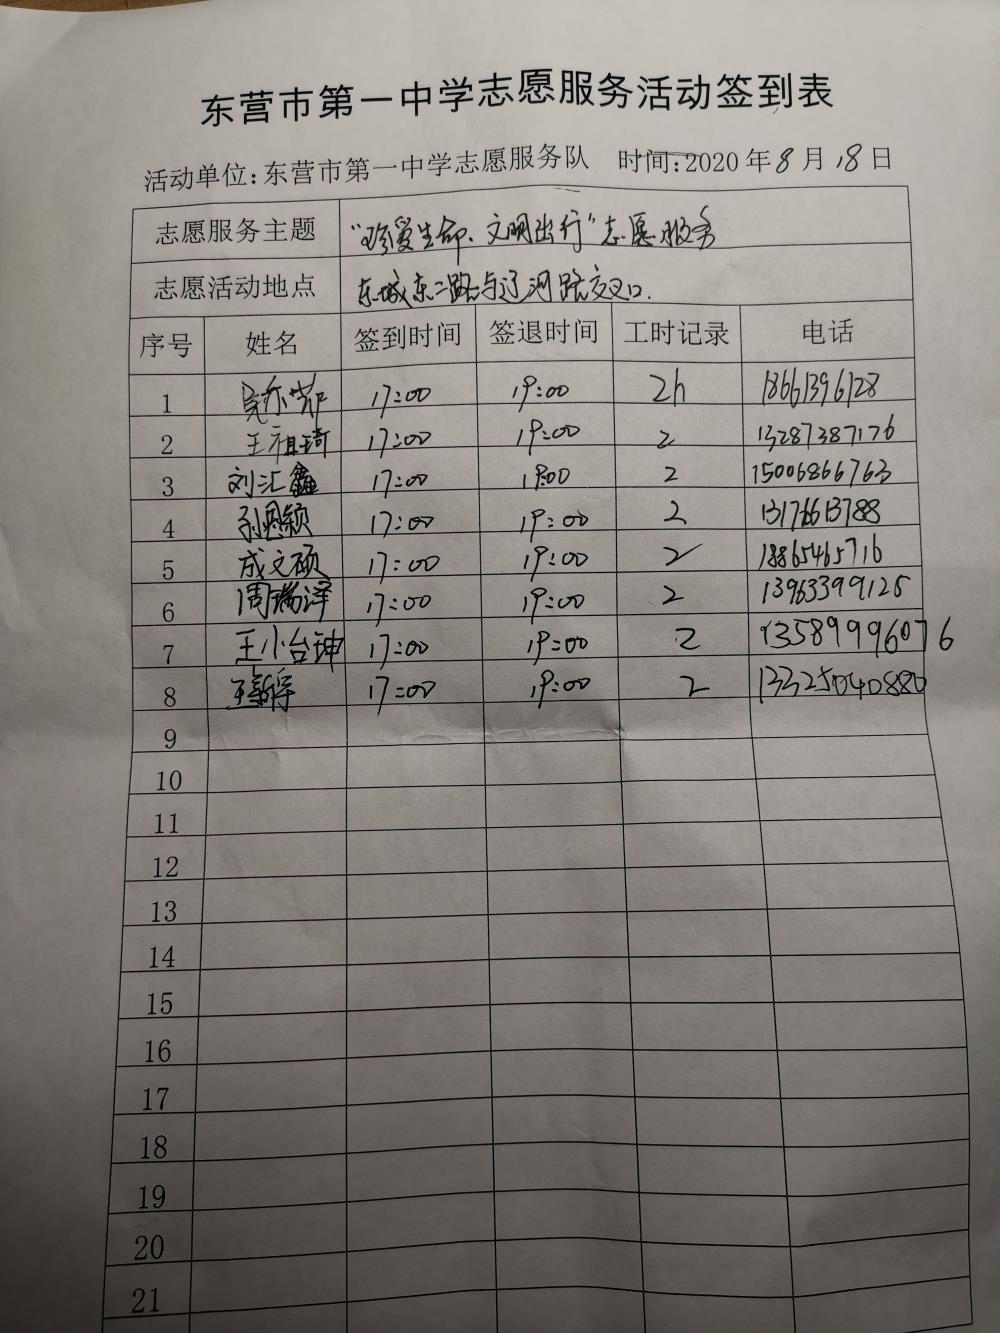 东营市第一中学志愿服务活动签到表
活动单位:东营市第一中学志愿服务队 时间:2020年8月18日
志愿服务主题 “珍爱生命、文明出行”志愿服务
志愿活动地点 东城东二路与辽河路交叉口.
序号 姓名 签到时间 签退时间 工时记录 电话
1 17:00 19:00 2h 18661396128
2 王祖琦 17:00 19:00 2 13287387176
3 刘汇鑫 17:00 19:00 2 15006866763
4 孙思颖 17:00 19:00 2 13176613788
5 成文硕 17:00 19:00 2 18865465716
6 周瑞泽 17:00 19:00 2 13963399125
7 王小台珅 17:00 19:00 2 13589996076
8 17:00 19:00 2 13325040880
9
10
11
12
13
14
15
16
17
18
19
20
21